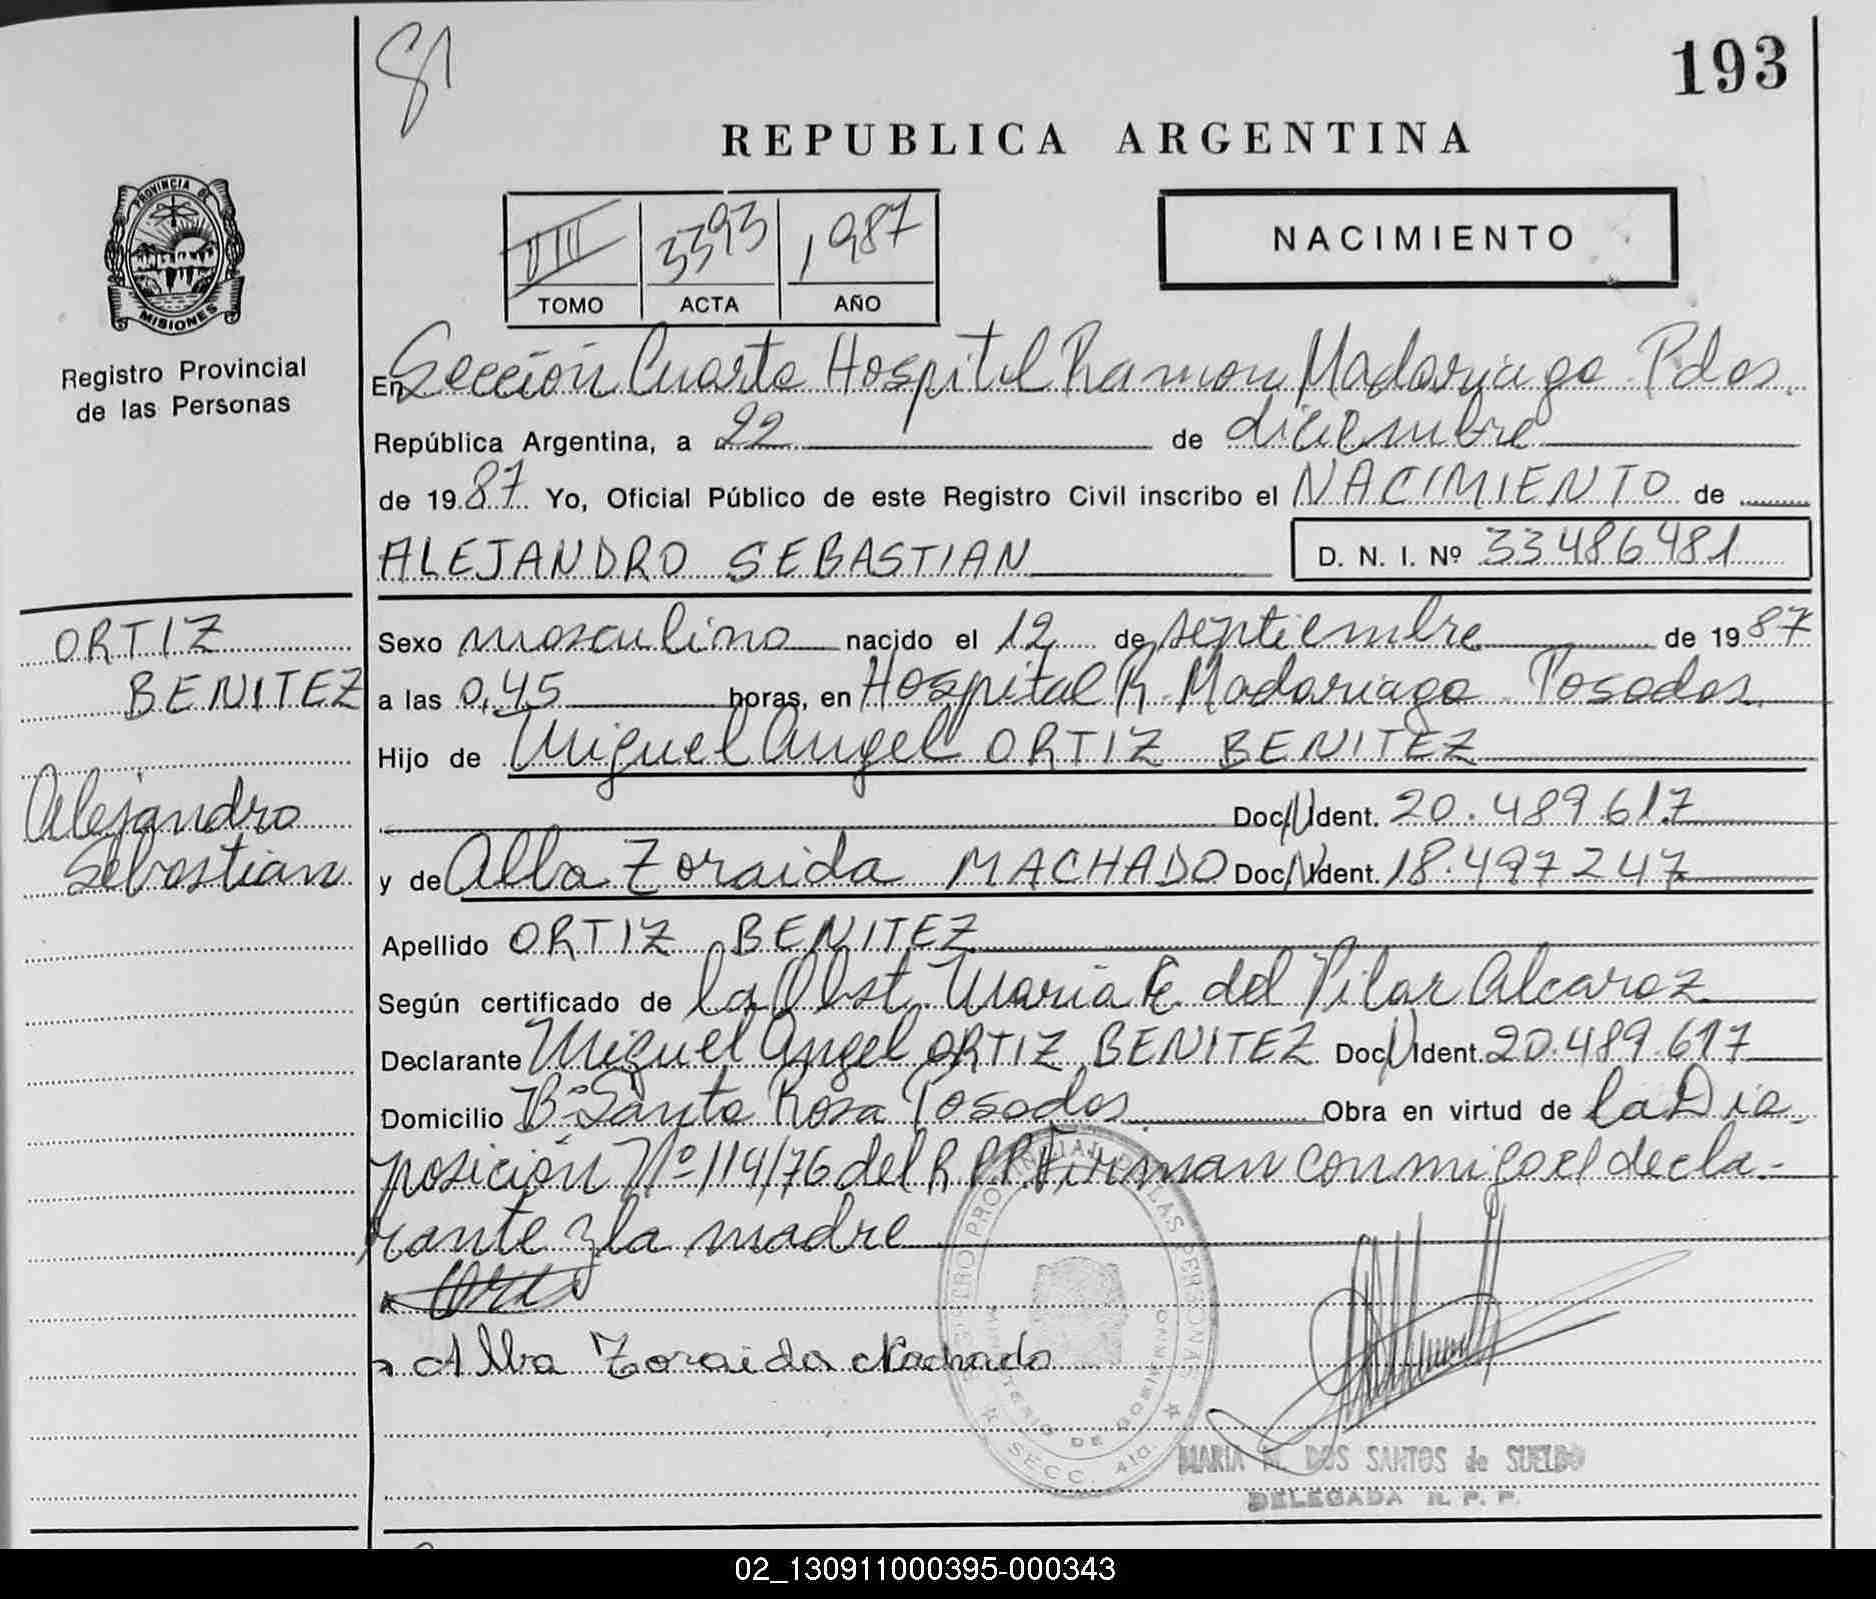 81
193
REPUBLICA ARGENTINA
PROVINCIA DE
MISIONES
Registro Provincial
de las Personas
VIII 3393 1987
TOMO ACTA AÑO
NACIMIENTO
En Sección Cuarta Hospital Ramon Madariaga. Pdas.
República Argentina, a 22 de diciembre
de 1987 Yo, Oficial Público de este Registro Civil inscribo el NACIMIENTO de
ALEJANDRO SEBASTIAN D. N. I. Nº 33486481
ORTIZ
BENITEZ
Alejandro
Sebastian
Sexo masculino nacido el 12 de septiembre de 1987
a las 0,45 horas, en Hospital R. Madariaga Posadas
Hijo de Miguel Angel ORTIZ BENITEZ
Doc. Ident. 20.489.617
y de Alba Zoraida MACHADO Doc. Ident. 18.497247
Apellido ORTIZ BENITEZ
Según certificado de la Obst. Maria E. del Pilar Alcaraz
Declarante Miguel Angel ORTIZ BENITEZ Doc. Ident. 20.489.617
Domicilio Bº Santa Rosa Posadas Obra en virtud de la Dis
posición Nº 114/76 del R.P.P. Firman conmigo el decla-
rante y la madre
Alba Zoraida Machado
REGISTRO PROVINCIAL DE LAS PERSONAS
MINISTERIO DE GOBIERNO
SECC. 4ta.
MARIA M. DOS SANTOS de SUELDO
DELEGADA R. P. P.
02_130911000395-000343